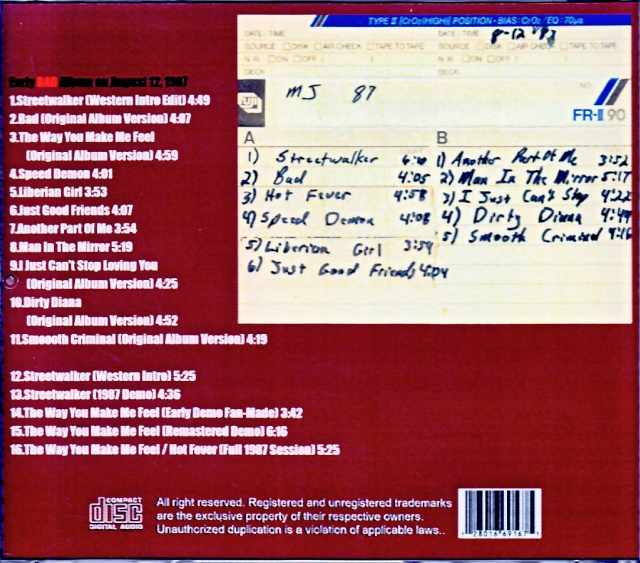 TYPE II [CrO2(HIGH)] POSITION · BIAS: CrO2 / EQ: 70µs
DATE · TIME DATE · TIME 8-12 '87
SOURCE □DISK □AIR CHECK □TAPE TO TAPE SOURCE □DISK □AIR CHECK □TAPE TO TAPE
N.R. □ON □OFF ( ) N.R. □ON □OFF ( )
DECK DECK
MJ 87
NO.
FR-II 90
A B
1) Streetwalker
2) Bad 4:05
3) Hot Fever 4:58
4) Speed Demon 4:08
5) Liberian Girl 3:59
6) Just Good Friends 4:04
1) Another Part Of Me 3:52
2) Man In The Mirror 5:17
3) I Just Can't Stop 4:22
4) Dirty Diana 4:49
5) Smooth Criminal 4:16
Early BAD Album on August 12, 1987
1.Streetwalker (Western Intro Edit) 4:49
2.Bad (Original Album Version) 4:07
3.The Way You Make Me Feel
(Original Album Version) 4:59
4.Speed Demon 4:01
5.Liberian Girl 3:53
6.Just Good Friends 4:07
7.Another Part Of Me 3:54
8.Man In The Mirror 5:19
9.I Just Can't Stop Loving You
(Original Album Version) 4:25
10.Dirty Diana
(Original Album Version) 4:52
11.Smoooth Criminal (Original Album Version) 4:19
12.Streetwalker (Western Intro) 5:25
13.Streetwalker (1987 Demo) 4:36
14.The Way You Make Me Feel (Early Demo Fan-Made) 3:42
15.The Way You Make Me Feel (Remastered Demo) 6:16
16.The Way You Make Me Feel / Hot Fever (Full 1987 Session) 5:25
COMPACT
disc
DIGITAL AUDIO
All right reserved. Registered and unregistered trademarks
are the exclusive property of their respective owners.
Unauthorized duplication is a violation of applicable laws..